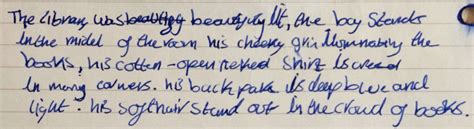 The library was beautifuly lit, the boy Stands
in the midel of the room his cheeky grin illuminating the
books, his cotten-open necked Shirt is creased
in many corners. his back pake is deep blue and
light. his soft hair stand out in the croud of books.